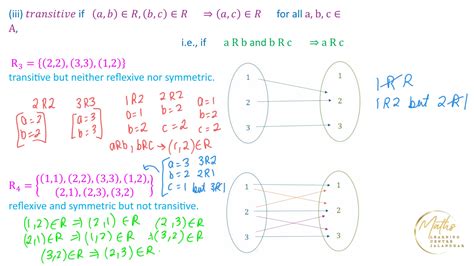 (iii) transitive if (a, b) ∈ R, (b, c) ∈ R ⇒ (a, c) ∈ R for all a, b, c ∈
A,
i.e., if a R b and b R c ⇒ a R c
R₃ = {(2,2), (3,3), (1,2)}
transitive but neither reflexive nor symmetric.
2R2 3R3 1R2 2R2 a=1
a=2 a=3 a=1 b=2 b=2
b=2 b=3 b=2 c=2 c=2
aRb, bRc ⇒ (c,2) ∈ R
1 1
2 2
3 3
1R̸R
1R2 but 2R̸1
R₄ = {(1,1), (2,2), (3,3), (1,2),
(2,1), (2,3), (3,2)}
a=3 3R2
b=2 2R1
c=1 but 3R̸1
reflexive and symmetric but not transitive.
(1,2)∈R ⇒ (2,1)∈R (2,3)∈R
(2,1)∈R ⇒ (1,2)∈R (3,2)∈R
(3,2)∈R ⇒ (2,3)∈R.
1 1
2 2
3 3
Maths
LEARNING
CENTRE
JALANDHAR